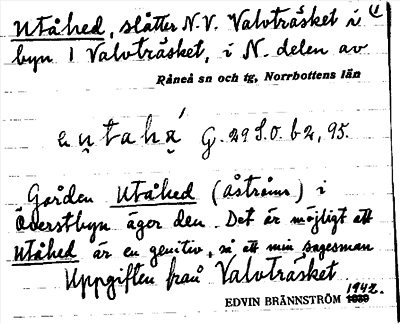 Utåhed, slåtter N.V. Valvträsket i (1
byn 1 Valvträsket, i N. delen av
Råneå sn och tg, Norrbottens län
G. 29 S.O. b2, 95.
Gården Utåhed (Åströms) i
Överstbyn äger den. Det är möjligt att
Utåhed är en genitiv, sä att min sagesman
Uppgiften från Valvträsket
1942.
EDVIN BRÄNNSTRÖM 1939